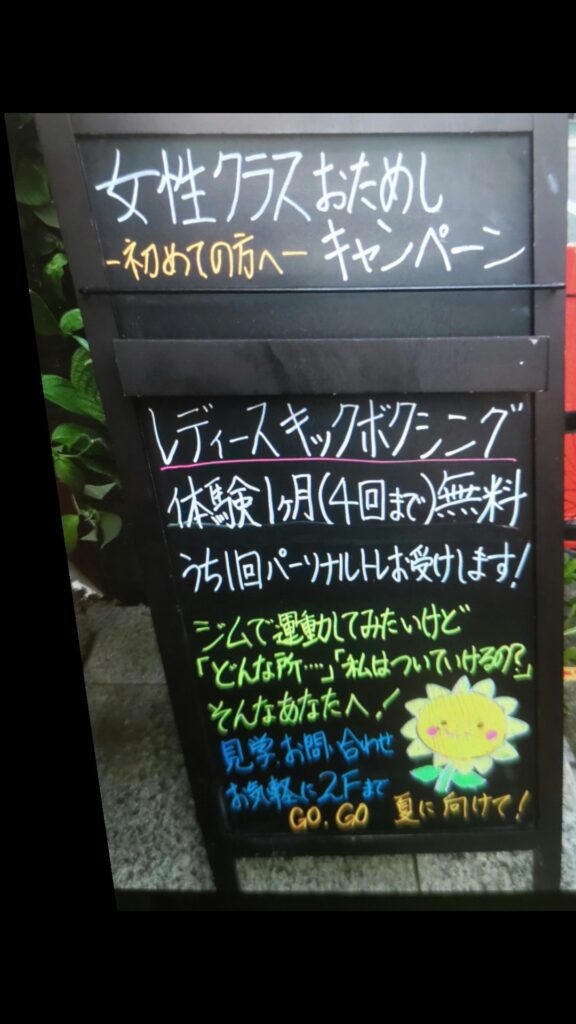 女性クラスおためし
-初めての方へ- キャンペーン
レディースキックボクシング
体験1ヶ月(4回まで)無料
うち1回パーソナルトレお受けします!
ジムで運動してみたいけど
「どんな所…」「私はついていけるの?」
そんなあなたへ!
見学、お問い合わせ
お気軽に2Fまで
GO.GO 夏に向けて!